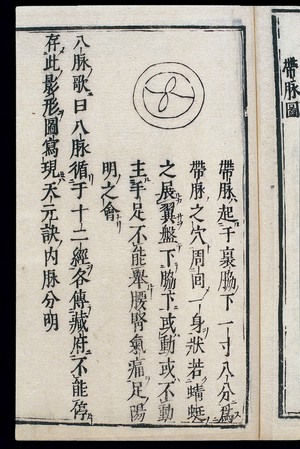 帶脉圖
帶脉起于裹脇下一寸八分爲
帶脉之穴周間一身狀若蜻蜓
之展翼盤下脇下或動或不動
主手足不能舉腰腎氣痛足陽
明之會
八脉歌曰八脉循于十二經各傳藏府不能停
存此影形圖寫現天元訣内脉分明